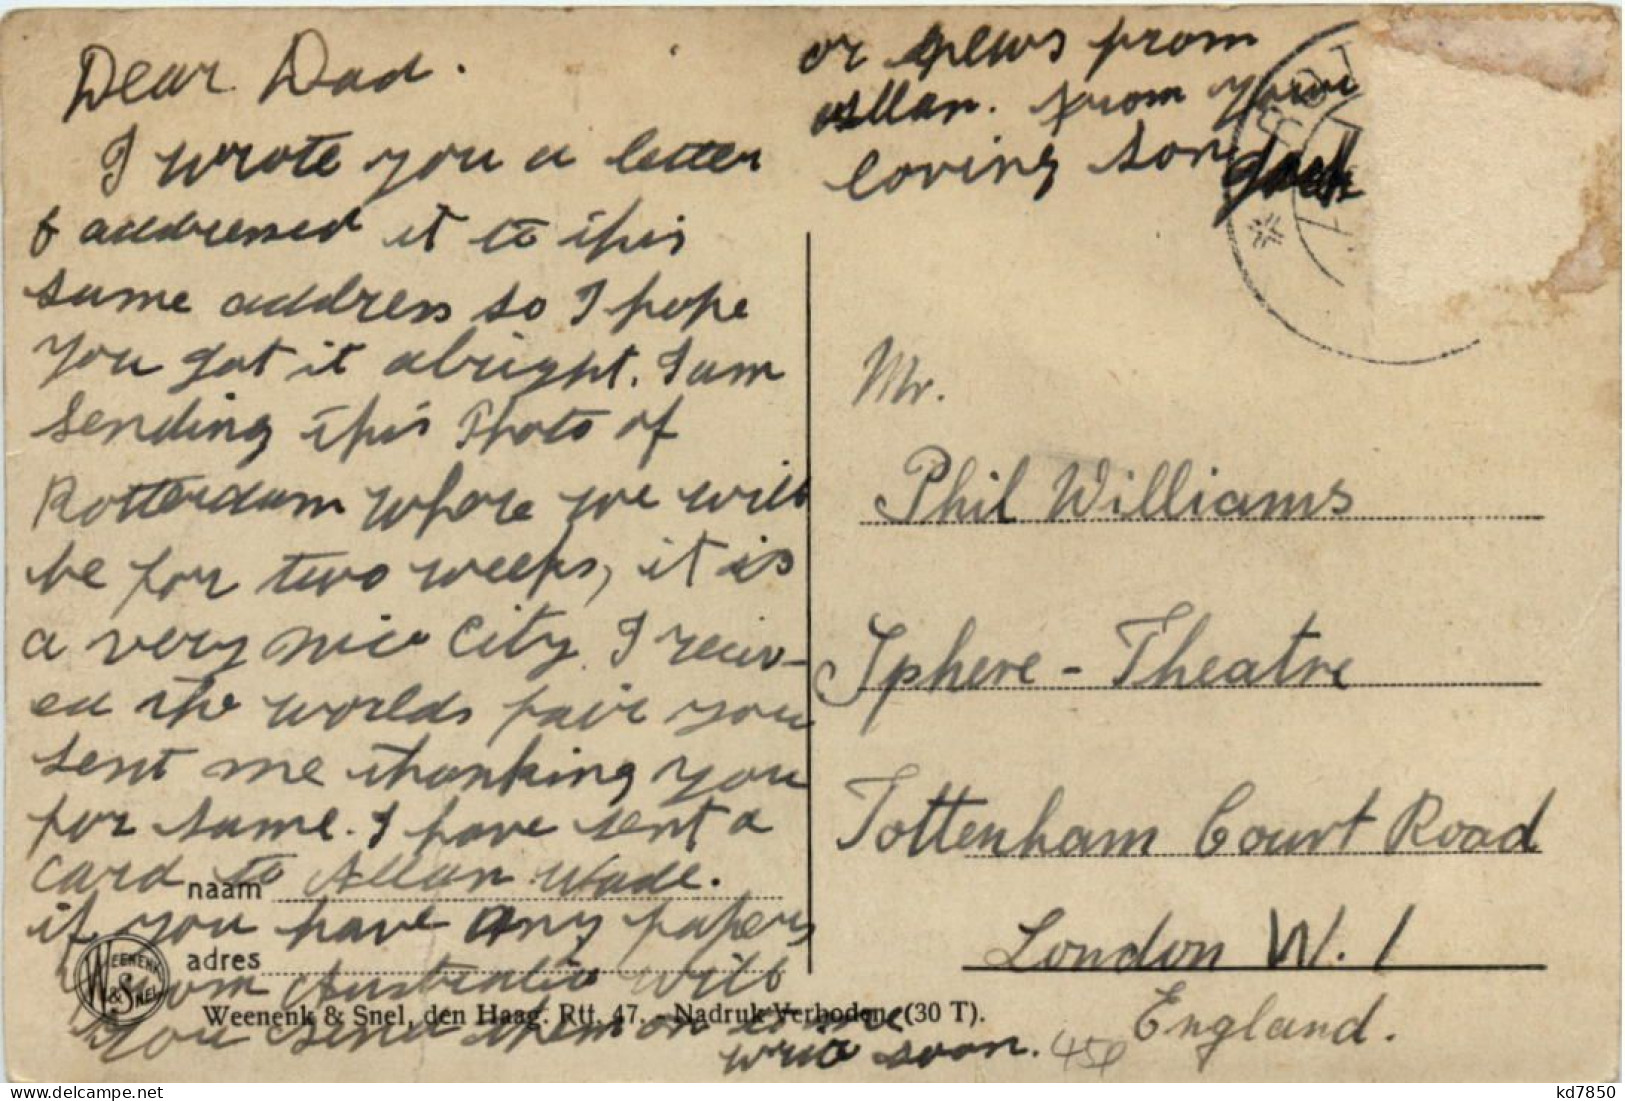 Dear Dad.
I wrote you a letter
& addressed it to this
same address so I hope
you got it alright. I am
sending this Photo of
Rotterdam where we will
be for two weeks, it is
a very nice City. I reciev-
ed the worlds fair you
sent me thanking you
for same. I have sent a
card to Allan Wade.
naam
if you have any papers
adres
from Australia will
WEENENK & SNEL
Weenenk & Snel, den Haag. Rtt. 47. - Nadruk Verboden (30 T).
you send them on to me
write soon. 45¢
or news from
Allan. from your
loving son Jack
ROT
Mr.
Phil Williams
Sphere - Theatre
Tottenham Court Road
London W. 1
England.
delcampe.net
kd7850